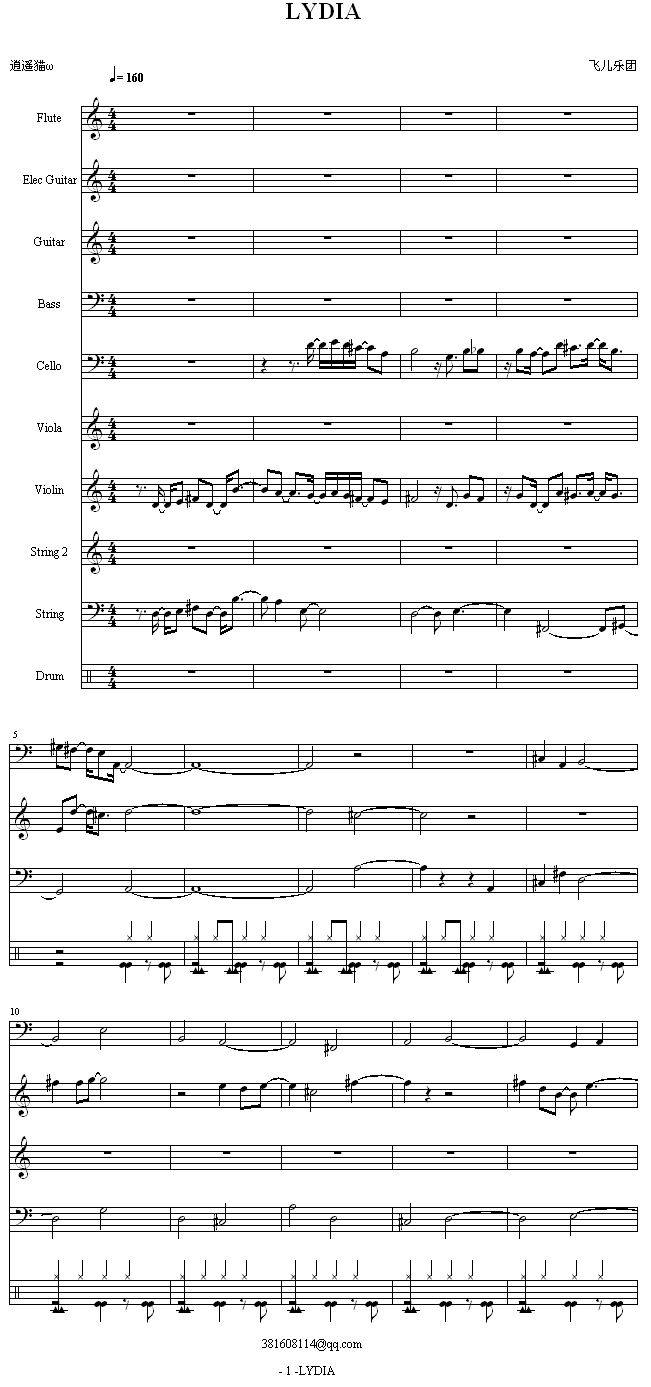 LYDIA
逍遥猫ω 飞儿乐团
= 160
Flute
Elec Guitar
Guitar
Bass
Cello
Viola
Violin
String 2
String
Drum
5
10
381608114@qq.com
- 1 -LYDIA